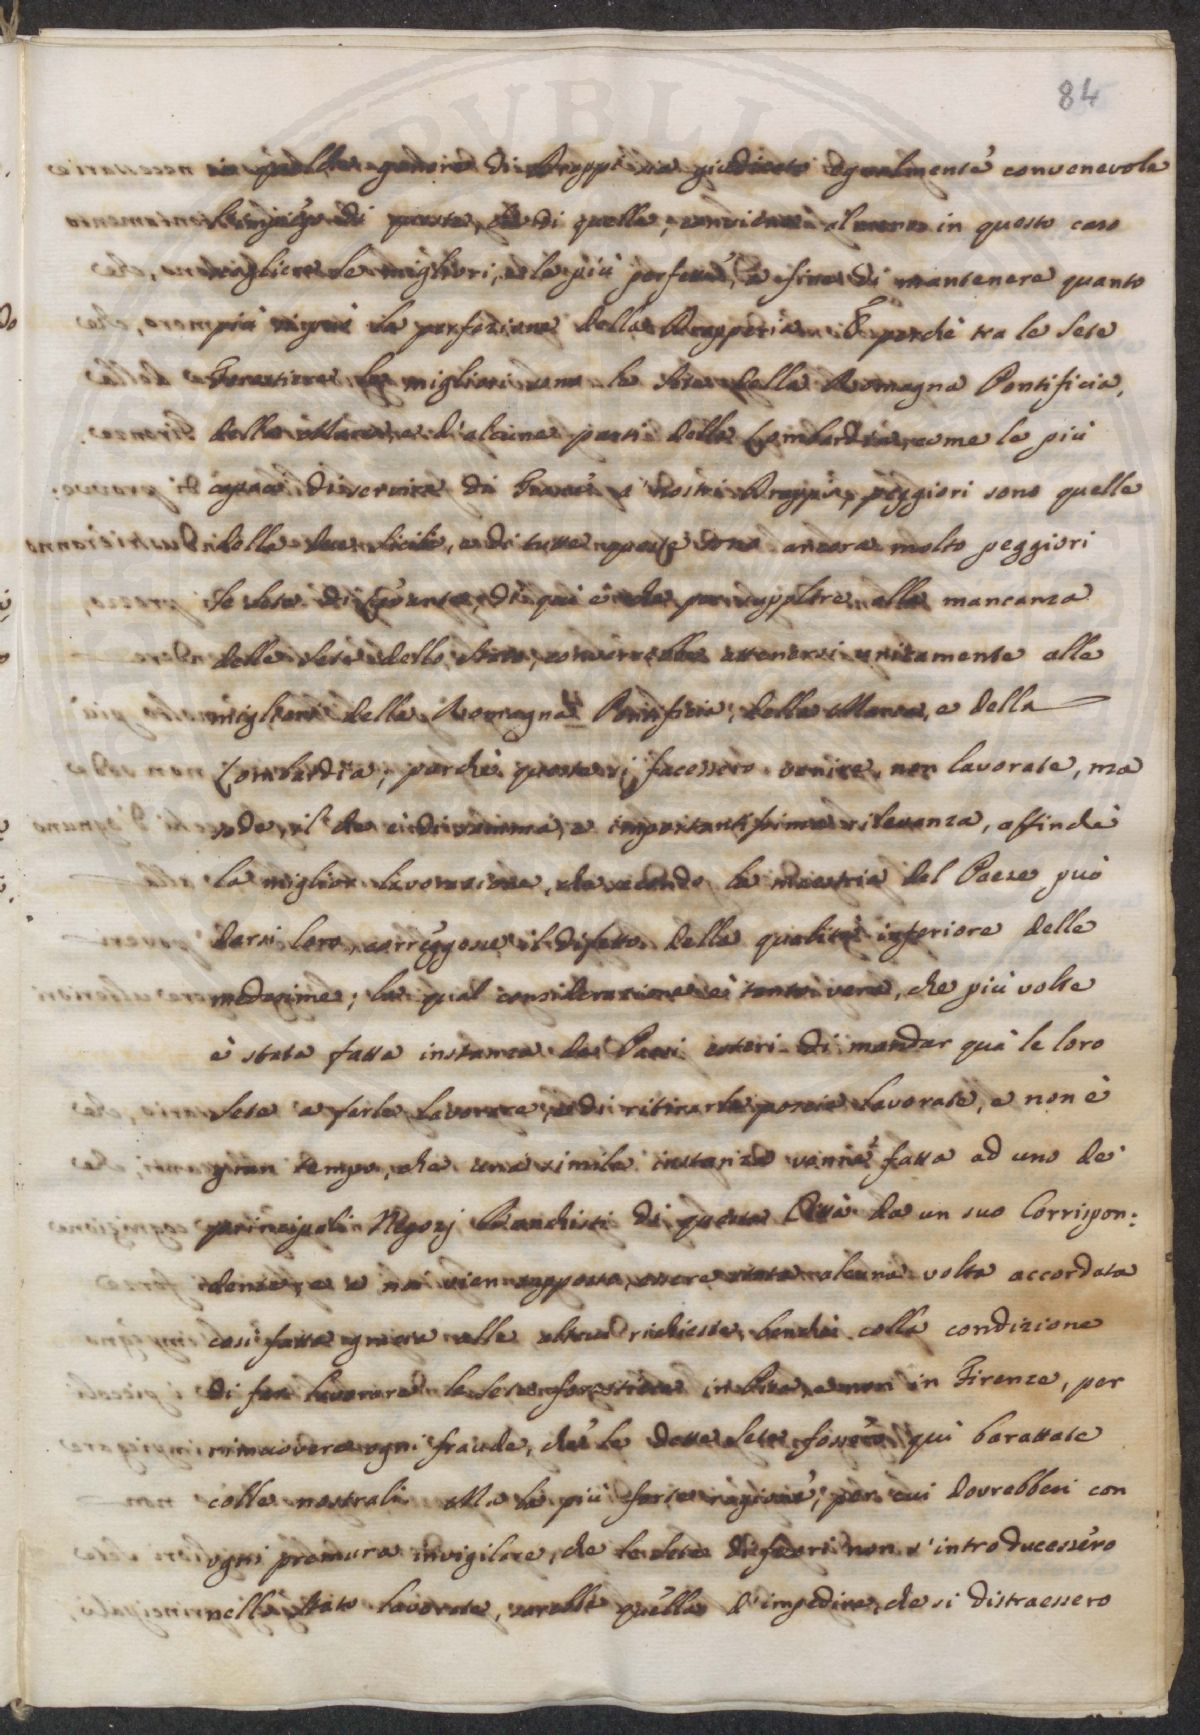 84
in qualche genere di Drappi sia giudicato egualmente convenevole
l'impiego di queste, che di quelle, converrà almeno in questo caso
scegliere le migliori, e le più perfette, a fine di mantenere quanto
più si può la perfezione della Drapperia. E perchè tra le Sete
Forestiere le migliori sono le Sete della Romagna Pontificia,
della Marca, e d'alcune parti della Lombardia, come le più
capaci di servire di Trame a' nostri Drappi, peggiori sono quelle
delle due Sicilie, e di tutte queste sono ancora molto peggiori
le Sete di Levante, di qui è che per supplire alla mancanza
delle Sete dello Stato, converrebbe attenersi unicamente alle
migliori della Romagna Pontificia, della Marca, e della
Lombardia, perchè queste si facessero venire, non lavorate, ma
sode, il che è di somma, e importantissima rilevanza, affinchè
la miglior lavorazione, che secondo la maestria del Paese può
darsi loro, corregga il difetto della qualità inferiore delle
medesime; la qual considerazione è tanto vera, che più volte
è stata fatta instanza da Paesi esteri di mandar quà le loro
Sete a farle lavorare, e di ritirarle poscia lavorate, e non è
gran tempo, che una simile instanza venne fatta ad uno de'
principali Negozj Banchisti di questa Città da un suo Corrispon:
dente, e a noi vien supposto, essere stata alcuna volta accordata
così fatta grazia alle altrui richieste, benchè colla condizione
di far lavorare le Sete forestiere in Pisa, e non in Firenze, per
rimuovere ogni fraude, che le dette Sete fossero quì barattate
colle nostrali. Ma la più forte ragione, per cui dovrebbesi con
ogni premura invigilare, che le Sete di fuori non s'introducessero
nello Stato lavorate, sarebbe quella d'impedire, che si distraessero